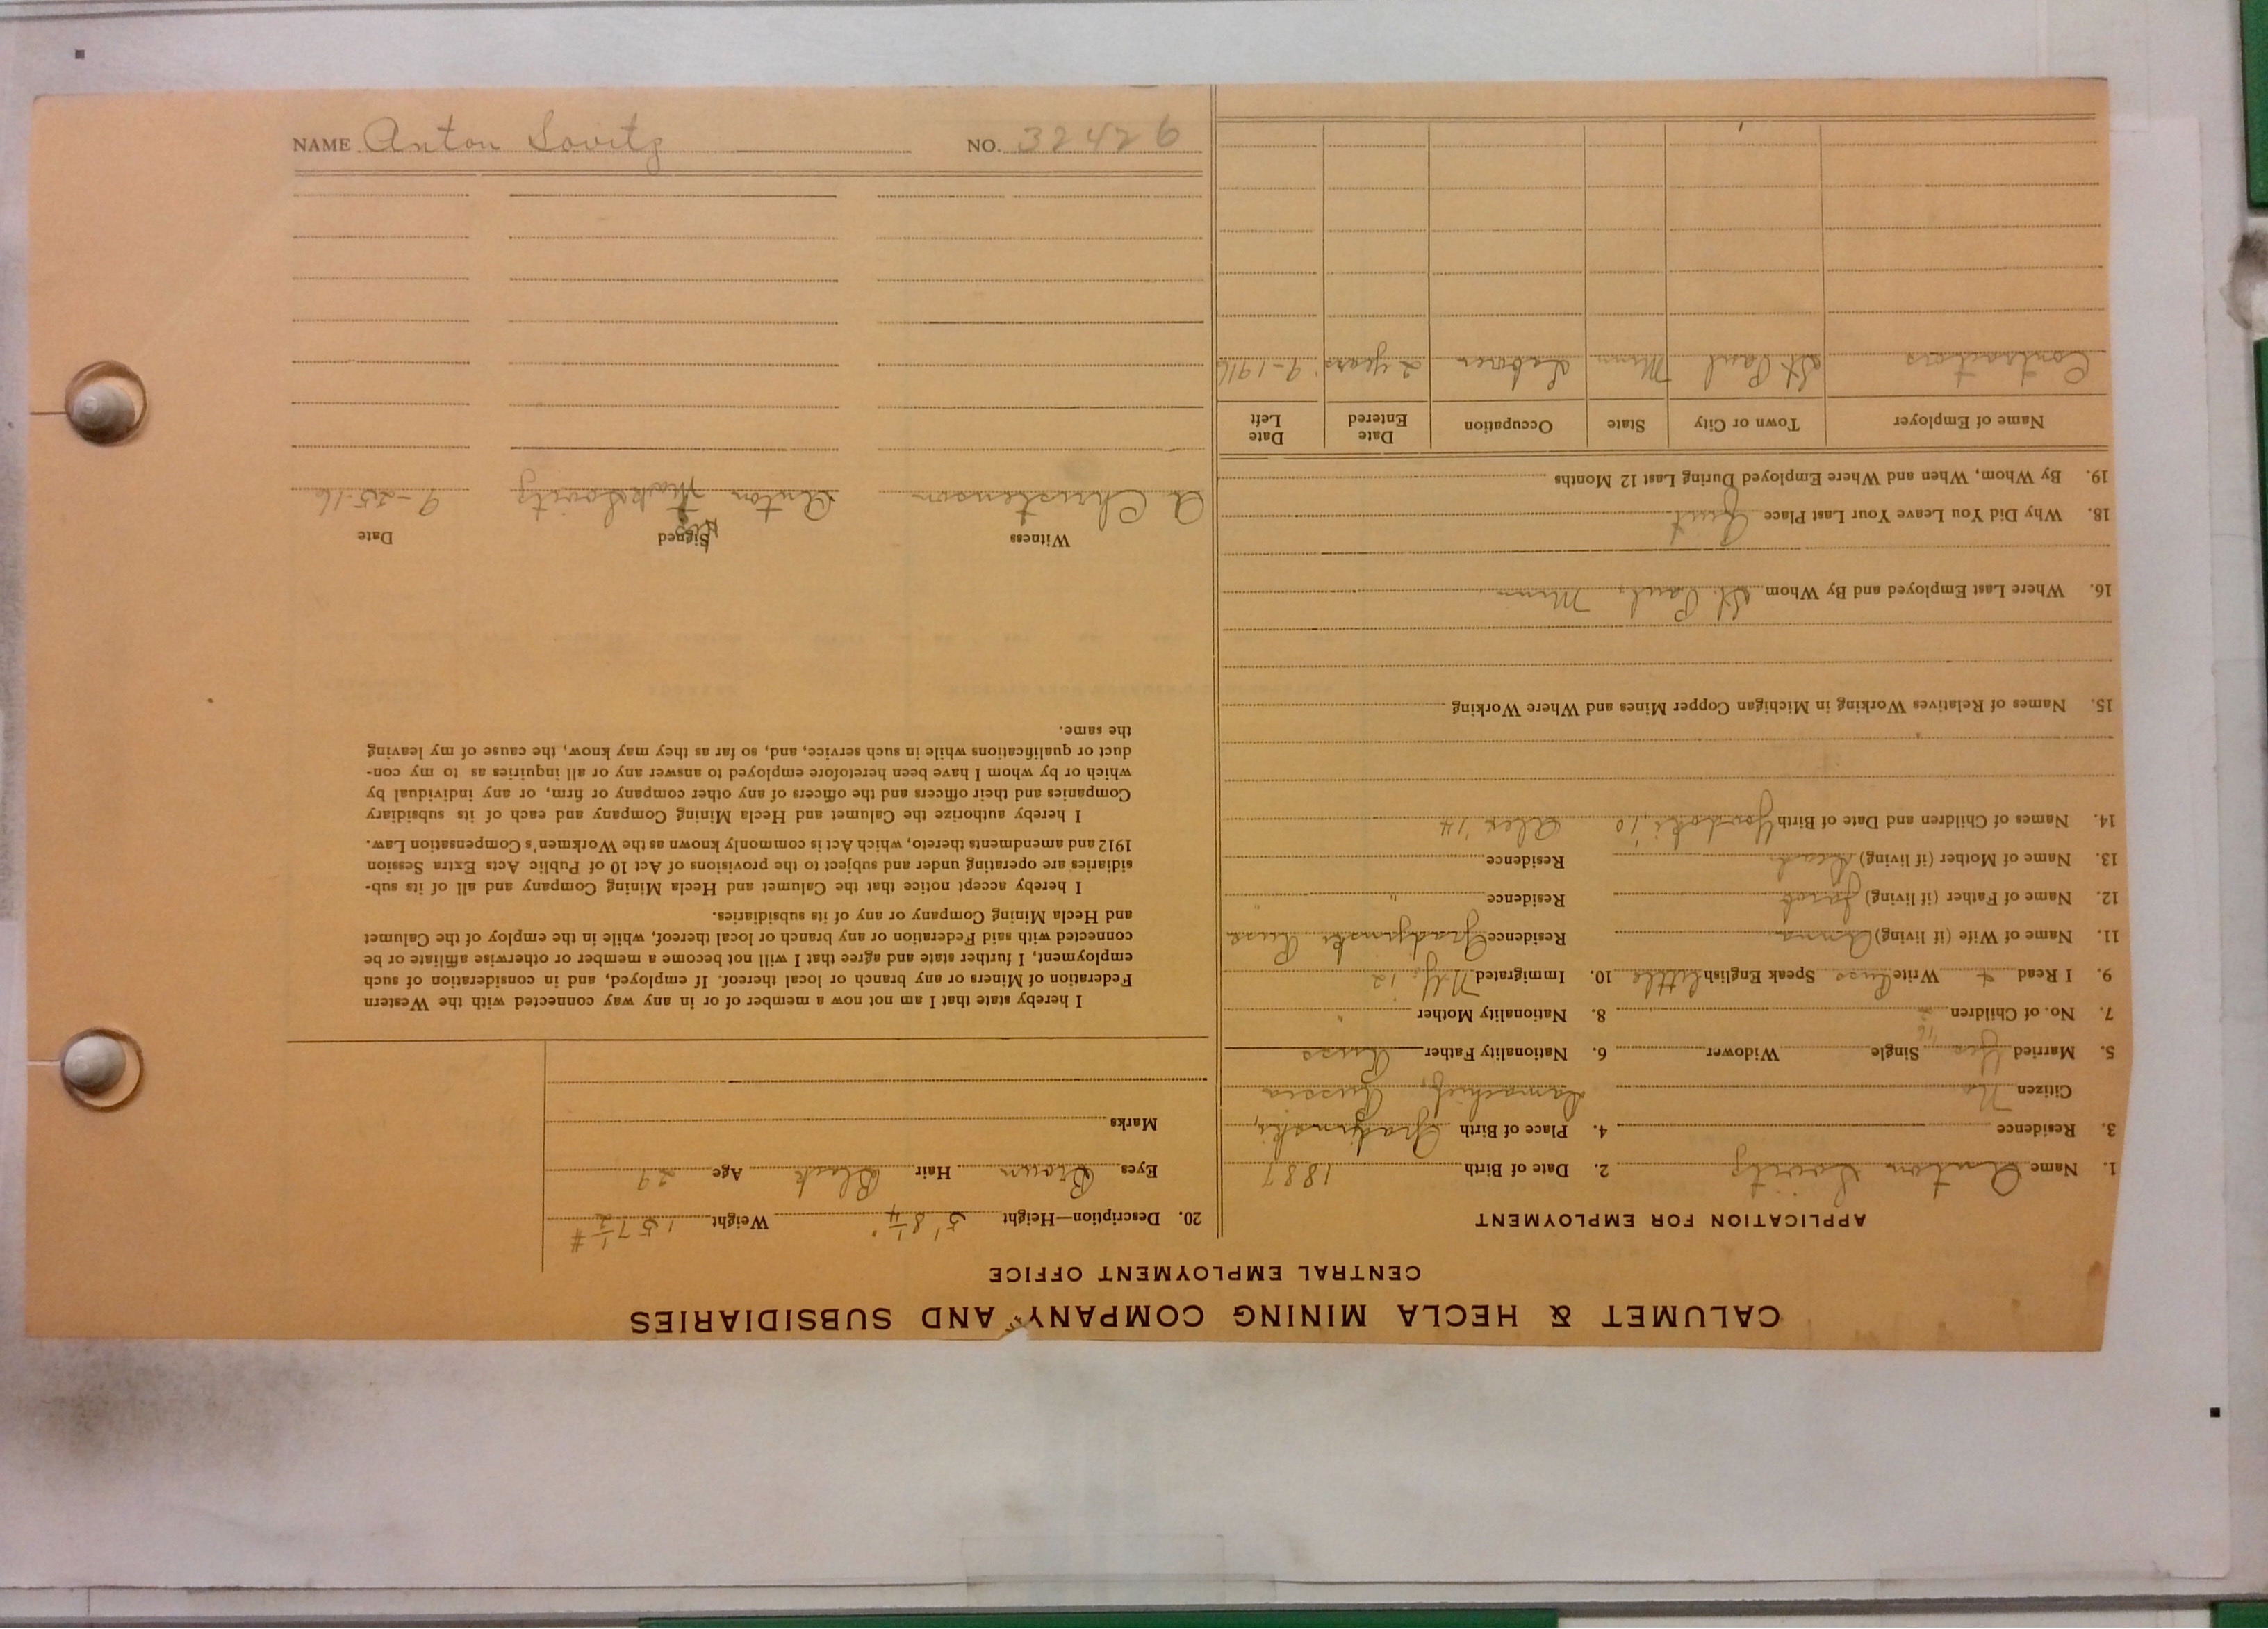 NAME Anton Sovitz NO. 32426
CALUMET & HECLA MINING COMPANY AND SUBSIDIARIES
CENTRAL EMPLOYMENT OFFICE
APPLICATION FOR EMPLOYMENT
1. Name Anton Sovitz 2. Date of Birth 1887
3. Residence 4. Place of Birth
Citizen No Russia
5. Married Yes Single Widower 6. Nationality Father Russ
7. No. of Children 2 8. Nationality Mother "
9. I Read & Write Russ Speak English little 10. Immigrated N.Y. '12
11. Name of Wife (if living) Anna Residence Russ
12. Name of Father (if living) Jacob Residence "
13. Name of Mother (if living) Dead Residence
14. Names of Children and Date of Birth '10 Alex '14
15. Names of Relatives Working in Michigan Copper Mines and Where Working
16. Where Last Employed and By Whom St. Paul, Minn
18. Why Did You Leave Your Last Place Quit
19. By Whom, When and Where Employed During Last 12 Months
Name of Employer Town or City State Occupation Date Entered Date Left
Contractors St Paul Minn Laborer 2 years 9-1916
20. Description—Height 5' 8 1/4" Weight 157 1/2 #
Eyes Brown Hair Black Age 29
Marks
I hereby state that I am not now a member of or in any way connected with the Western
Federation of Miners or any branch or local thereof. If employed, and in consideration of such
employment, I further state and agree that I will not become a member or otherwise affiliate or be
connected with said Federation or any branch or local thereof, while in the employ of the Calumet
and Hecla Mining Company or any of its subsidiaries.
I hereby accept notice that the Calumet and Hecla Mining Company and all of its sub-
sidiaries are operating under and subject to the provisions of Act 10 of Public Acts Extra Session
1912 and amendments thereto, which Act is commonly known as the Workmen's Compensation Law.
I hereby authorize the Calumet and Hecla Mining Company and each of its subsidiary
Companies and their officers and the officers of any other company or firm, or any individual by
which or by whom I have been heretofore employed to answer any or all inquiries as to my con-
duct or qualifications while in such service, and, so far as they may know, the cause of my leaving
the same.
Witness Signed Date
His
A Christenson Anton X Sovitz 9-25-16
Mark